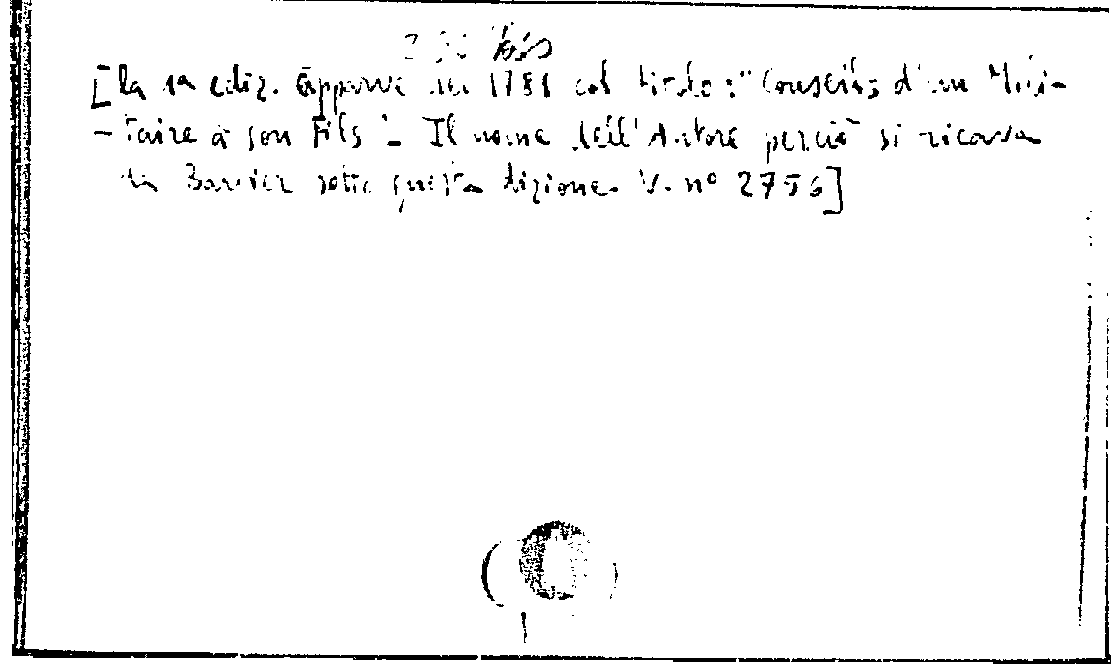 bis
[la 1a ediz. apparve nel 1781 col titolo: "Conseils d'un Mili-
-taire à son Fils". Il nome dell'Autore perciò si ricava
da Barbier sotto questa dizione. V. n° 2756]